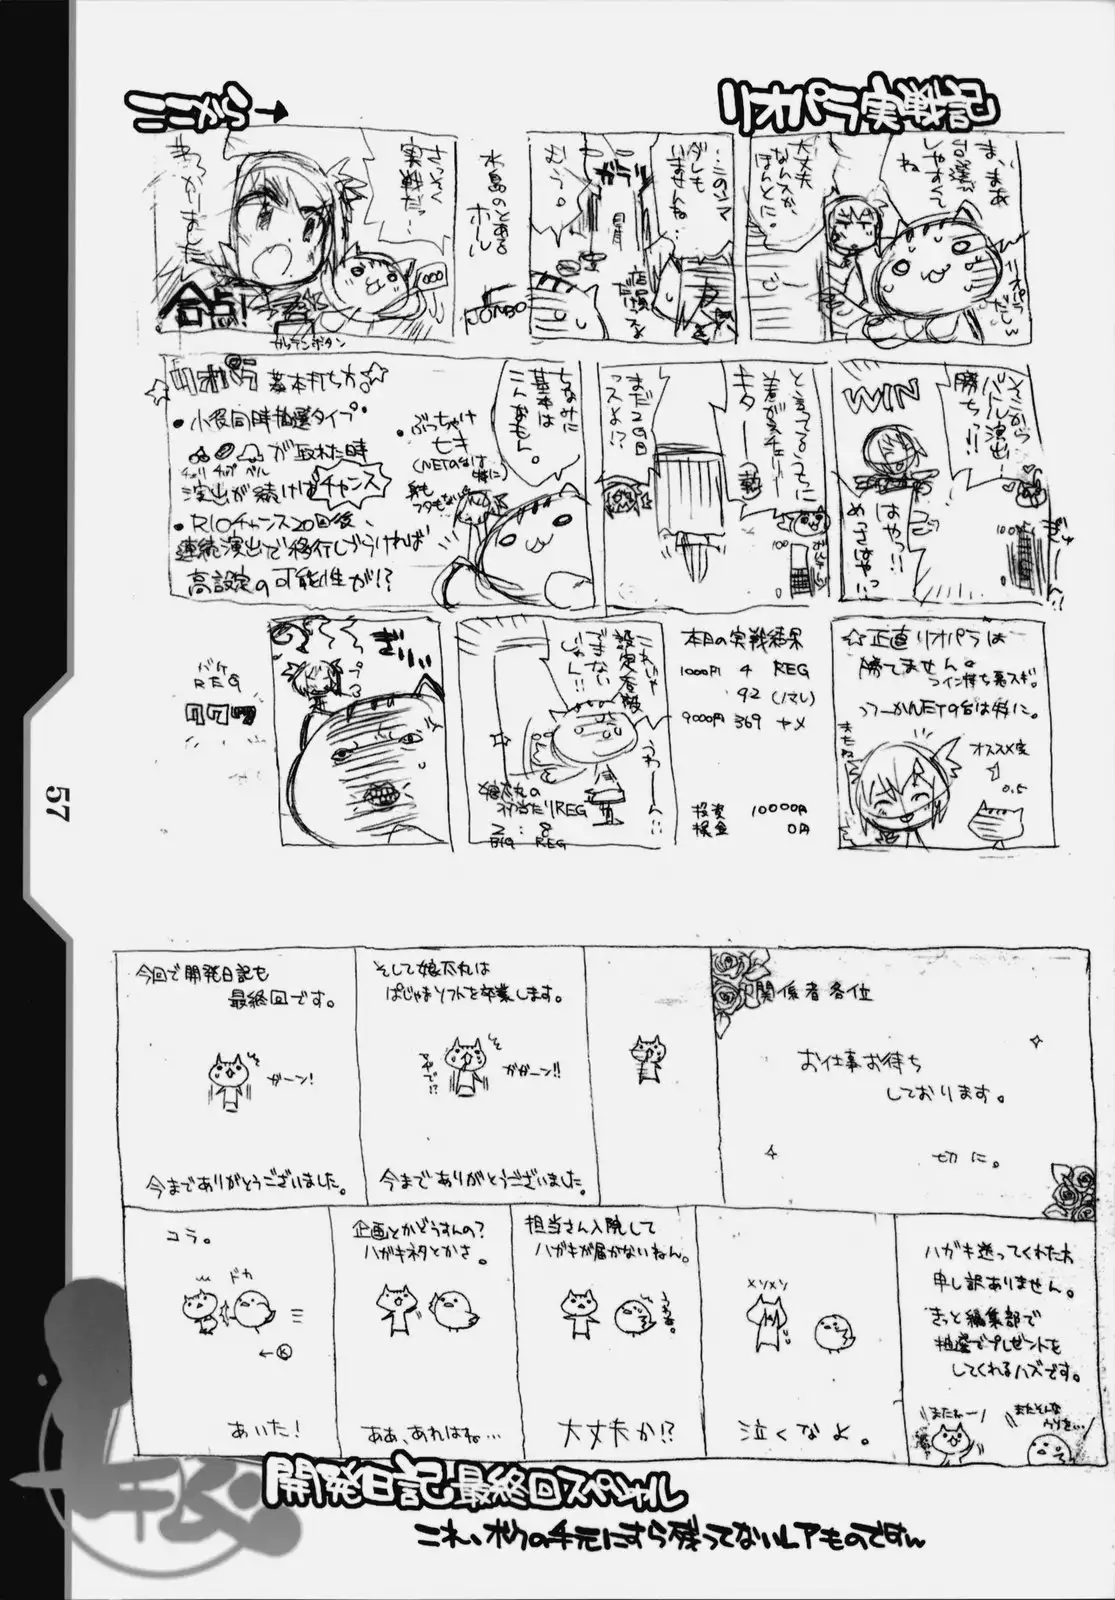 リオパラ実戦記
ま、まあ
しやすくて
ね
リオパラ
だしw
大丈夫
なんスか、
ほんとに。
…このシマ
ダレも
いませんね…
ガラ
むう。
水島のとある
ホール
JUMBO
さっそく
実戦だっ…
合点!
ガッテンボタン
そこから
バトル演出…
勝ちっ!!
WIN
はやっ!!
めっさはやっ…
と言ってるうちに
キター
まだ2回目
ッスよ!?
ちなみに
基本は
こんなもん。
リオパラ
基本打ち方
・小役同時抽選タイプ・
が取れた時
チェリー チップ ベル
演出が続けばチャンス
・RIOチャンス20回後、
連続演出で移行しづらければ
高設定の可能性が!?
・ぶっちゃけ
七キ
(NETの台は
特に)
☆正直リオパラは
勝てません。
コイン持ち悪スギ。
うつーかNETの台は特に。
オススメ度
0.5
またね
本日の実戦結果
1000円 4 REG
92 (ノマレ)
9000円 369 ヤメ
投資 10000円
換金 0円
これじゃ
設定看破
できない
じゃん!!
うわーーん!!
娘太丸の
初当たりREG
2 : 8
BIG REG
ぎりり
プ
バケ
REG
クワッ
今回で開発日記も
最終回です。
ガーン!
今までありがとうございました。
そして娘太丸は
ぱじゃまソフトを卒業します。
マヂで!?
ガガーン!!
今までありがとうございました。
関係者各位
お仕事お待ち
しております。
切に。
コラ。
ドカ
←K
あいた!
企画とかどうすんの?
ハガキネタとかさ。
ああ、あれはね…
担当さん入院して
ハガキが届かないねん。
うるる。
大丈夫か!?
メソメソ
泣くなよ。
ハガキ送ってくれた方
申し訳ありません。
きっと編集部で
抽選でプレゼントを
してくれるハズです。
またねー
またそんな
ウソを…
開発日記最終回スペシャル
これ、ボクの手元にすら残ってないレアものですん
57